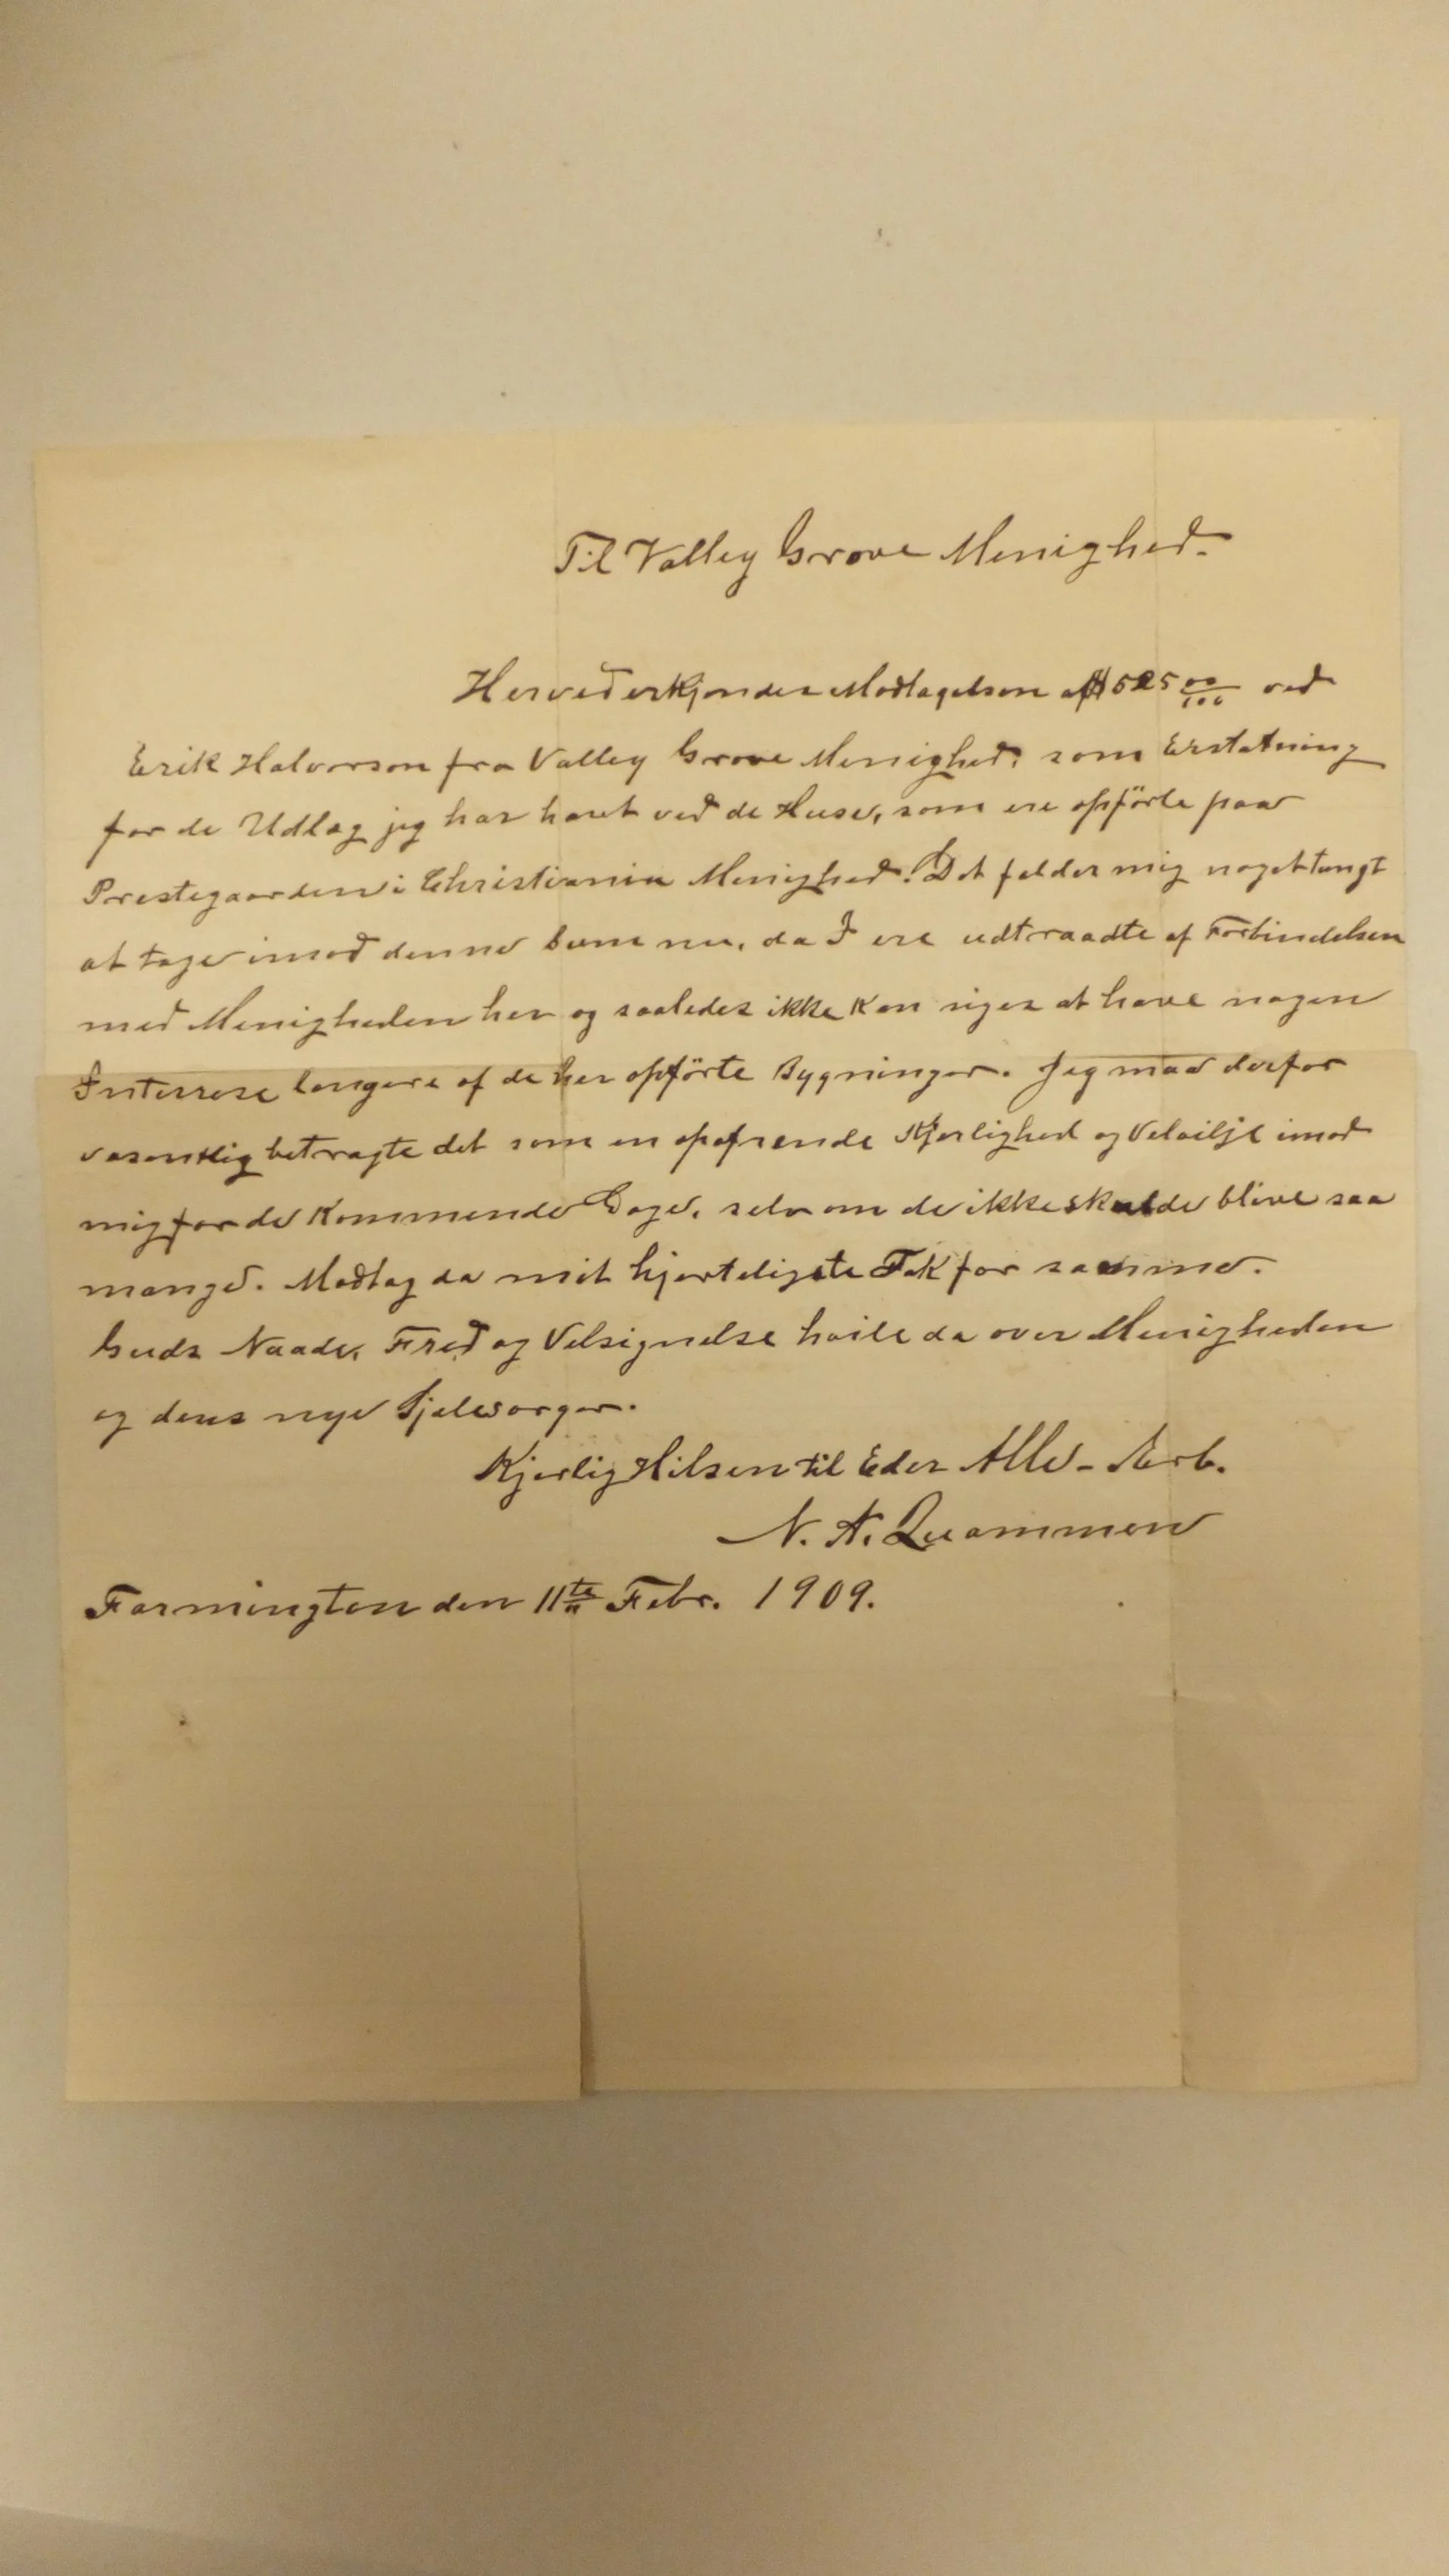 Til Valley Grove Menighed.
Herved erkjendes Modtagelsen af $525 00/100 ved
Erik Halvorson fra Valley Grove Menighed, som Erstatning
for de Udlæg jeg har havt ved de Huse, som ere opförte paa
Prestegaarden i Christiania Menighed. Det falder mig noget tungt
at tage imod denne Sum nu, da I ere udtraadte af Forbindelsen
med Menigheden her og saaledes ikke kan siges at have nogen
Interrese længere af de her opförte Bygninger. Jeg maa derfor
væsentlig betragte det som en opofrende Kjerlighed og Velvilje imod
mig for de kommende Dage, selv om de ikke skulde blive saa
mange. Modtag da mit hjerteligste Tak for samme.
Guds Naade, Fred og Velsignelse hvile da over Menigheden
og dens nye Sjelesorger.
Kjerlig Hilsen til Eder Alle - Ærb.
N. A. Quammen
Farmington den 11te Febr. 1909.